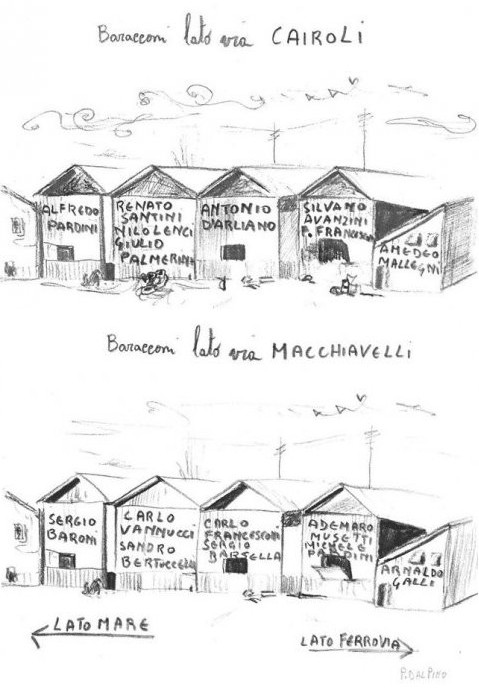 Baracconi lato via CAIROLI
ALFREDO
PARDINI
RENATO
SANTINI
NILO LENCI
GIULIO
PALMERINI
ANTONIO
D'ARLIANO
SILVANO
AVANZINI
F. FRANCESCONI
AMEDEO
MALLEGNI
Baracconi lato via MACCHIAVELLI
SERGIO
BARONI
CARLO
VANNUCCI
SANDRO
BERTUCCELLI
CARLO
FRANCESCONI
SERGIO
BARSELLA
ADEMARO
MUSETTI
MICHELE
PARDINI
ARNALDO
GALLI
LATO MARE
LATO FERROVIA
P. DAL PINO